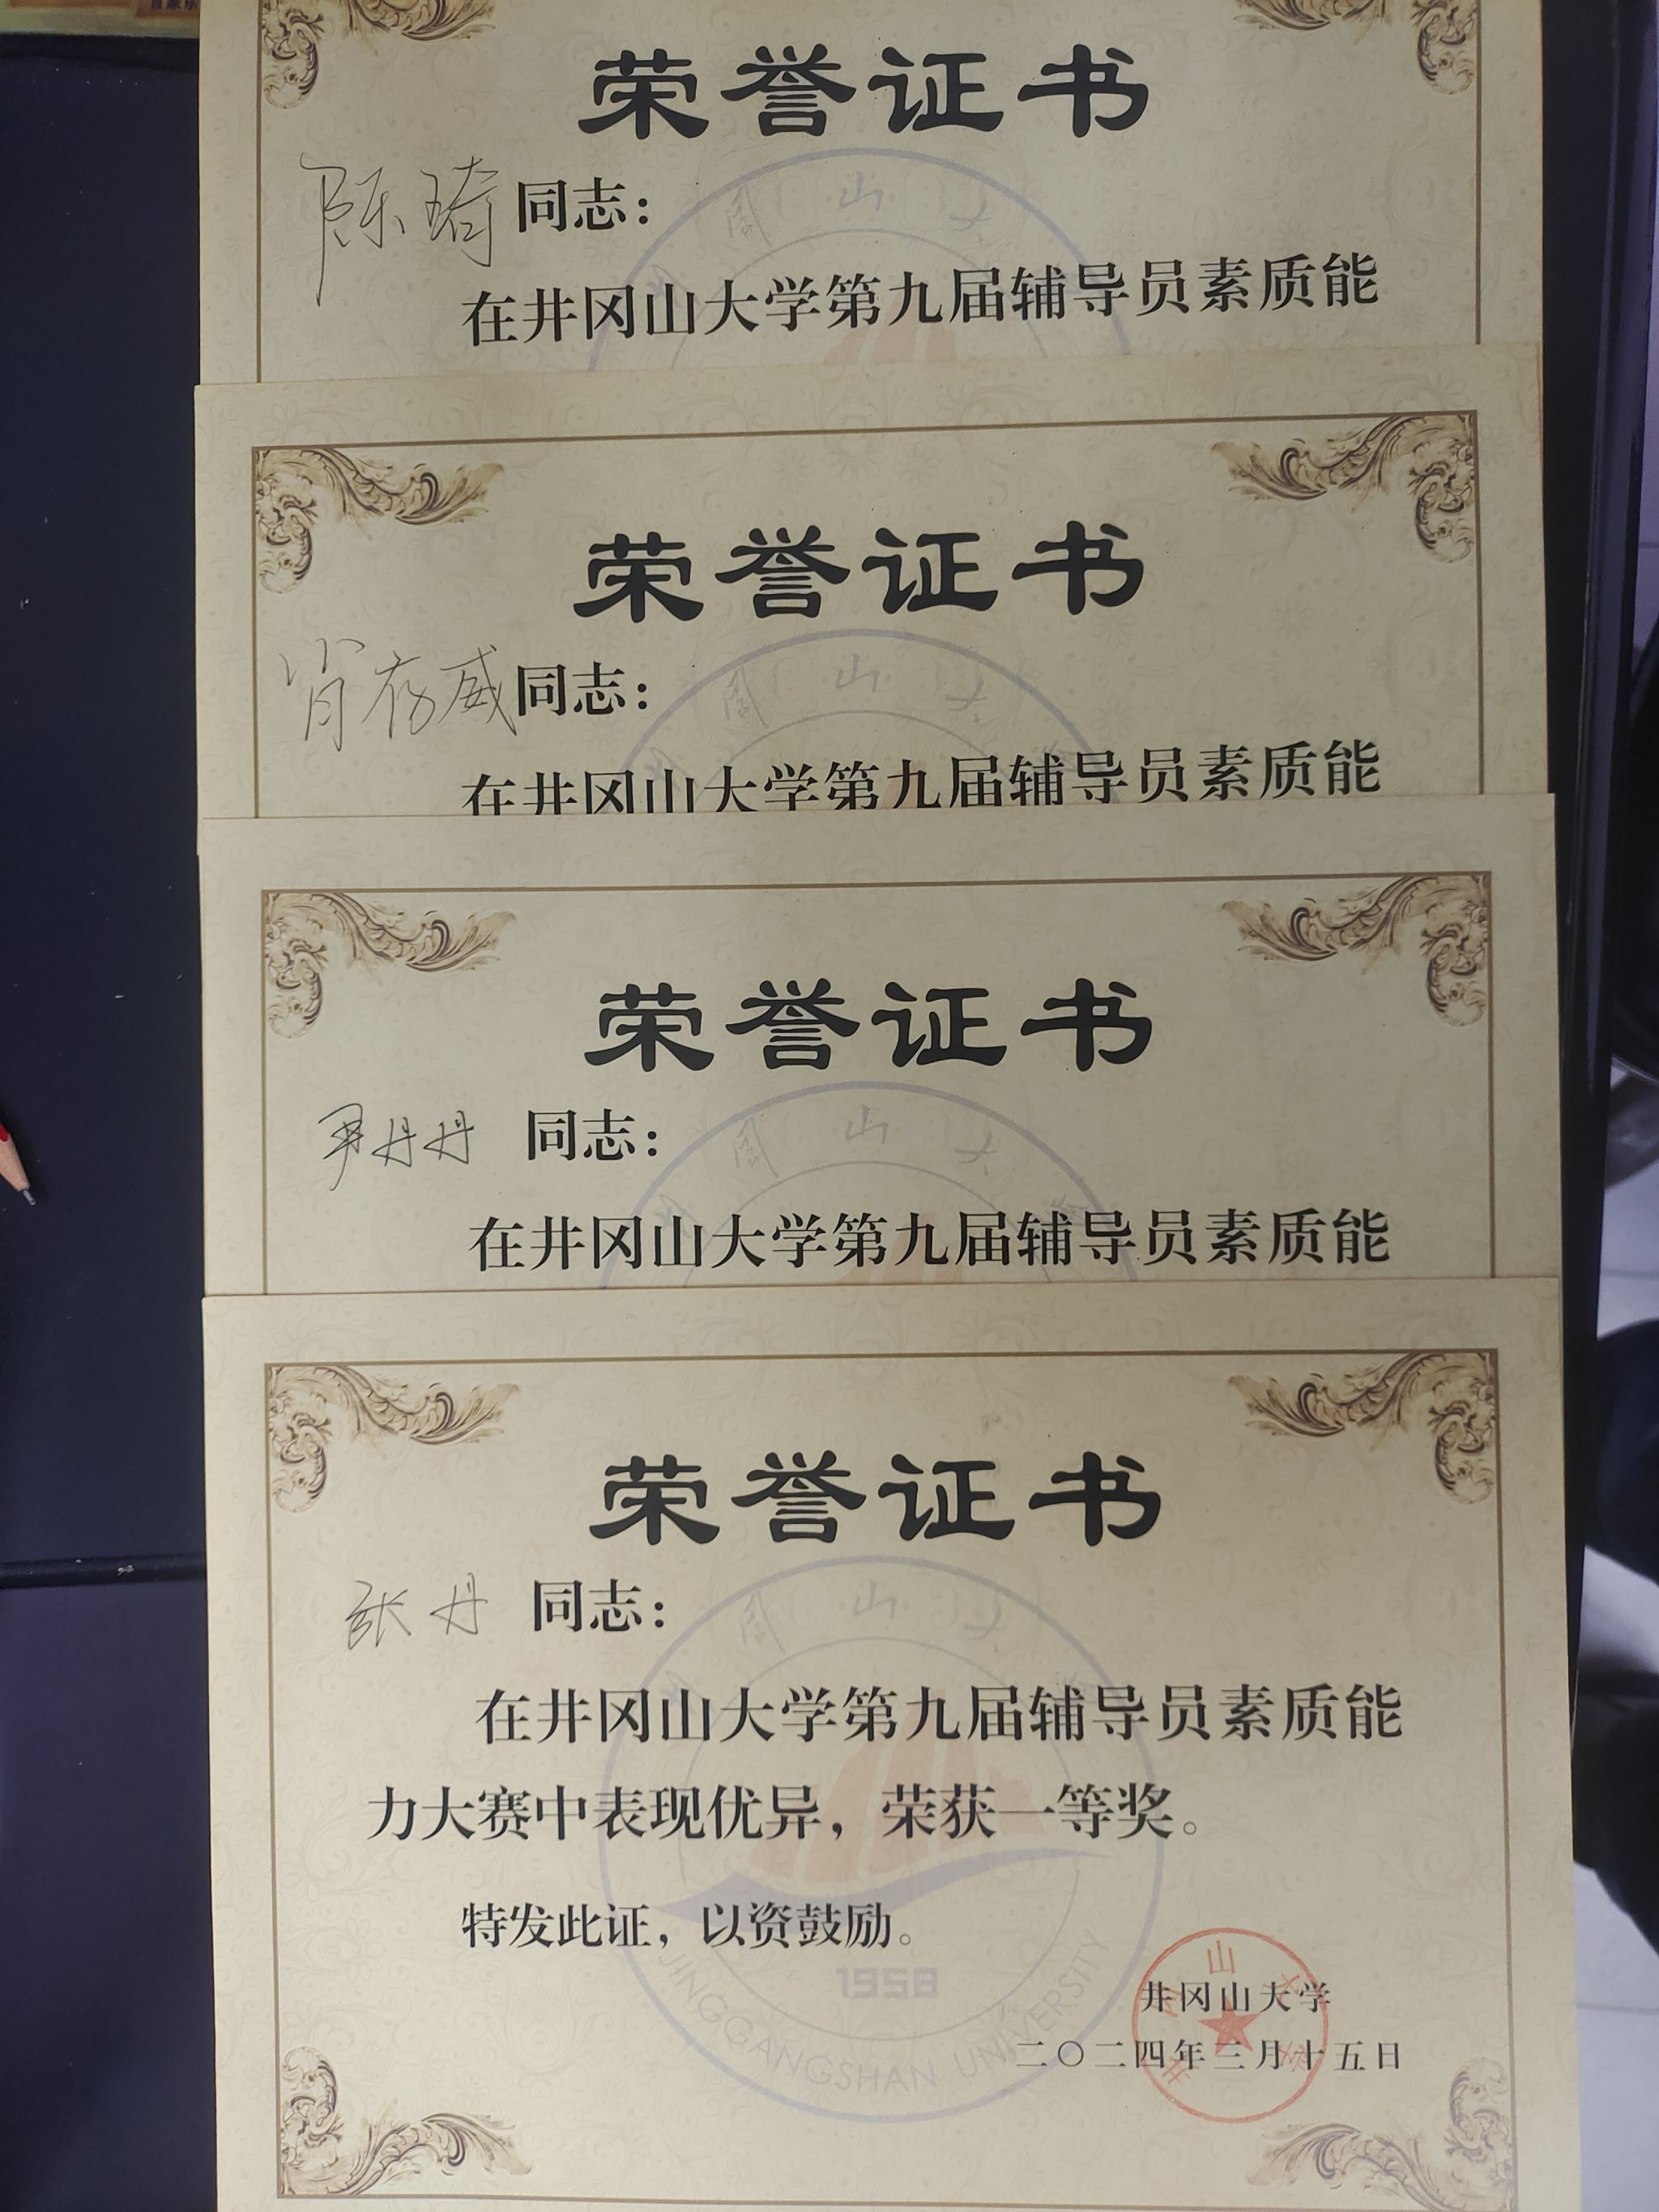 荣誉证书
陈琦同志：
在井冈山大学第九届辅导员素质能
荣誉证书
肖存威同志：
在井冈山大学第九届辅导员素质能
荣誉证书
尹丹丹 同志：
在井冈山大学第九届辅导员素质能
荣誉证书
张丹 同志：
在井冈山大学第九届辅导员素质能
力大赛中表现优异，荣获一等奖。
特发此证，以资鼓励。
1958
JINGGANGSHAN UNIVERSITY
井冈山大学
二〇二四年三月十五日